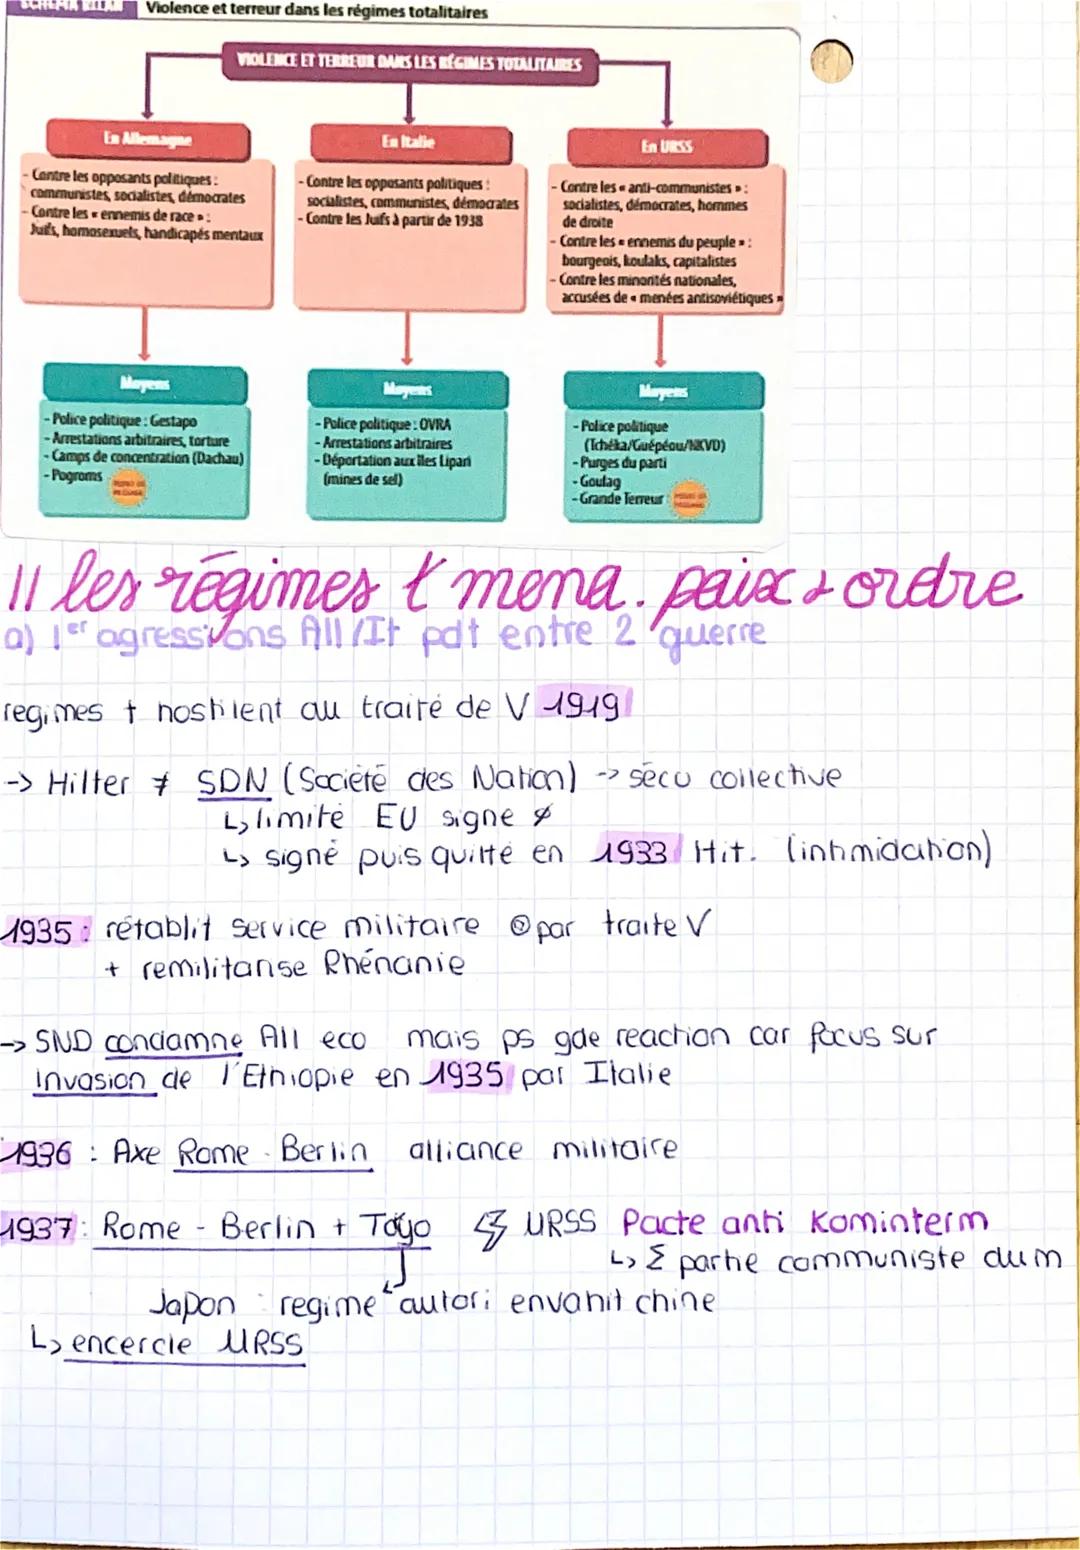 SCHÉMA BILAN Violence et terreur dans les régimes totalitaires
VIOLENCE ET TERREUR DANS LES RÉGIMES TOTALITAIRES
En Allemagne
- Contre les opposants politiques :
communistes, socialistes, démocrates
- Contre les « ennemis de race » :
Juifs, homosexuels, handicapés mentaux
Moyens
- Police politique : Gestapo
- Arrestations arbitraires, torture
- Camps de concentration (Dachau)
- Pogroms
En Italie
- Contre les opposants politiques :
socialistes, communistes, démocrates
- Contre les Juifs à partir de 1938
Moyens
- Police politique : OVRA
- Arrestations arbitraires
- Déportation aux îles Lipari
(mines de sel)
En URSS
- Contre les « anti-communistes » :
socialistes, démocrates, hommes
de droite
- Contre les « ennemis du peuple » :
bourgeois, koulaks, capitalistes
- Contre les minorités nationales,
accusées de « menées antisoviétiques »
Moyens
- Police politique
(Tchéka/Guépéou/NKVD)
- Purges du parti
- Goulag
- Grande Terreur
II les régimes t mena. paix & ordre
a) 1er agressions All/It pdt entre 2 guerre
regimes t hostilent au traité de V 1919
-> Hilter ≠ SDN (Societé des Nation) -> sécu collective
↳ limité EU signe ∅
↳ signé puis quitté en 1933 Hit. (intimidation)
1935 : rétablit service militaire par traite V
+ remilitarise Rhénanie
-> SND condamne All eco mais ps gde reaction car focus sur
invasion de l'Ethiopie en 1935 par Italie
1936 : Axe Rome - Berlin alliance militaire
1937 : Rome - Berlin + Toyo URSS Pacte anti Kominterm
↳ Σ partie communiste du m
Japon : regime autori envahit chine
↳ encercle URSS